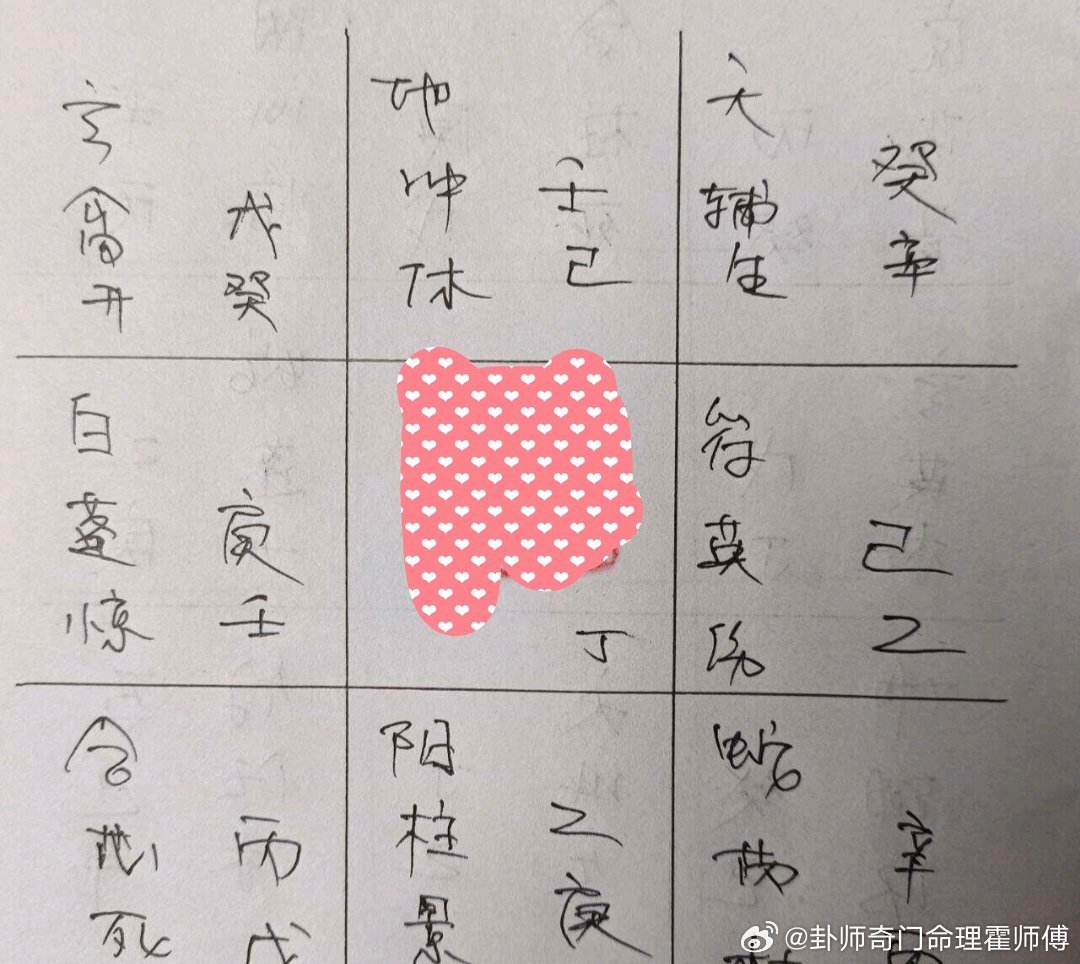 玄
开
戊
癸
地
冲
休
壬
己
天
辅
生
癸
辛
白
蓬
惊
庚
壬
丁
符
英
伤
己
乙
合
死
丙
戊
阴
柱
景
乙
庚
蛇
芮
辛
@卦师奇门命理霍师傅